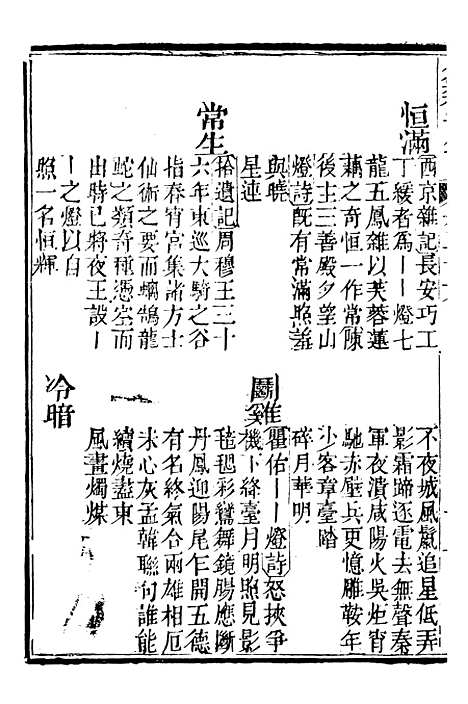 恒滿
西京雜記長安巧工
丁緩者爲——燈七
龍五鳳雜以芙蓉蓮
藕之奇恒一作常陳
後主三善殿夕望山
燈詩既有常滿照誰
與曉
星連
常生
拾遺記周穆王三十
六年東巡大騎之谷
指春宵宮集諸方士
仙術之要而螭鵠龍
蛇之類奇種憑空而
出時已將夜王設—
—之燈以自
照一名恒輝
不夜城風鬣追星低弄
影霜蹄逐電去無聲秦
軍夜潰咸陽火吳炬宵
馳赤壁兵更憶雕鞍年
少客章臺踏
碎月華明
鬬雞
瞿佑——燈詩怒挾爭
機上絳臺月明照見影
毰毸彩鸞舞鏡腸應斷
丹鳳迎陽尾乍開五德
有名終氣合兩雄相厄
未心灰孟韓聯句誰能
續燒盡東
風畫燭煤
冷暗